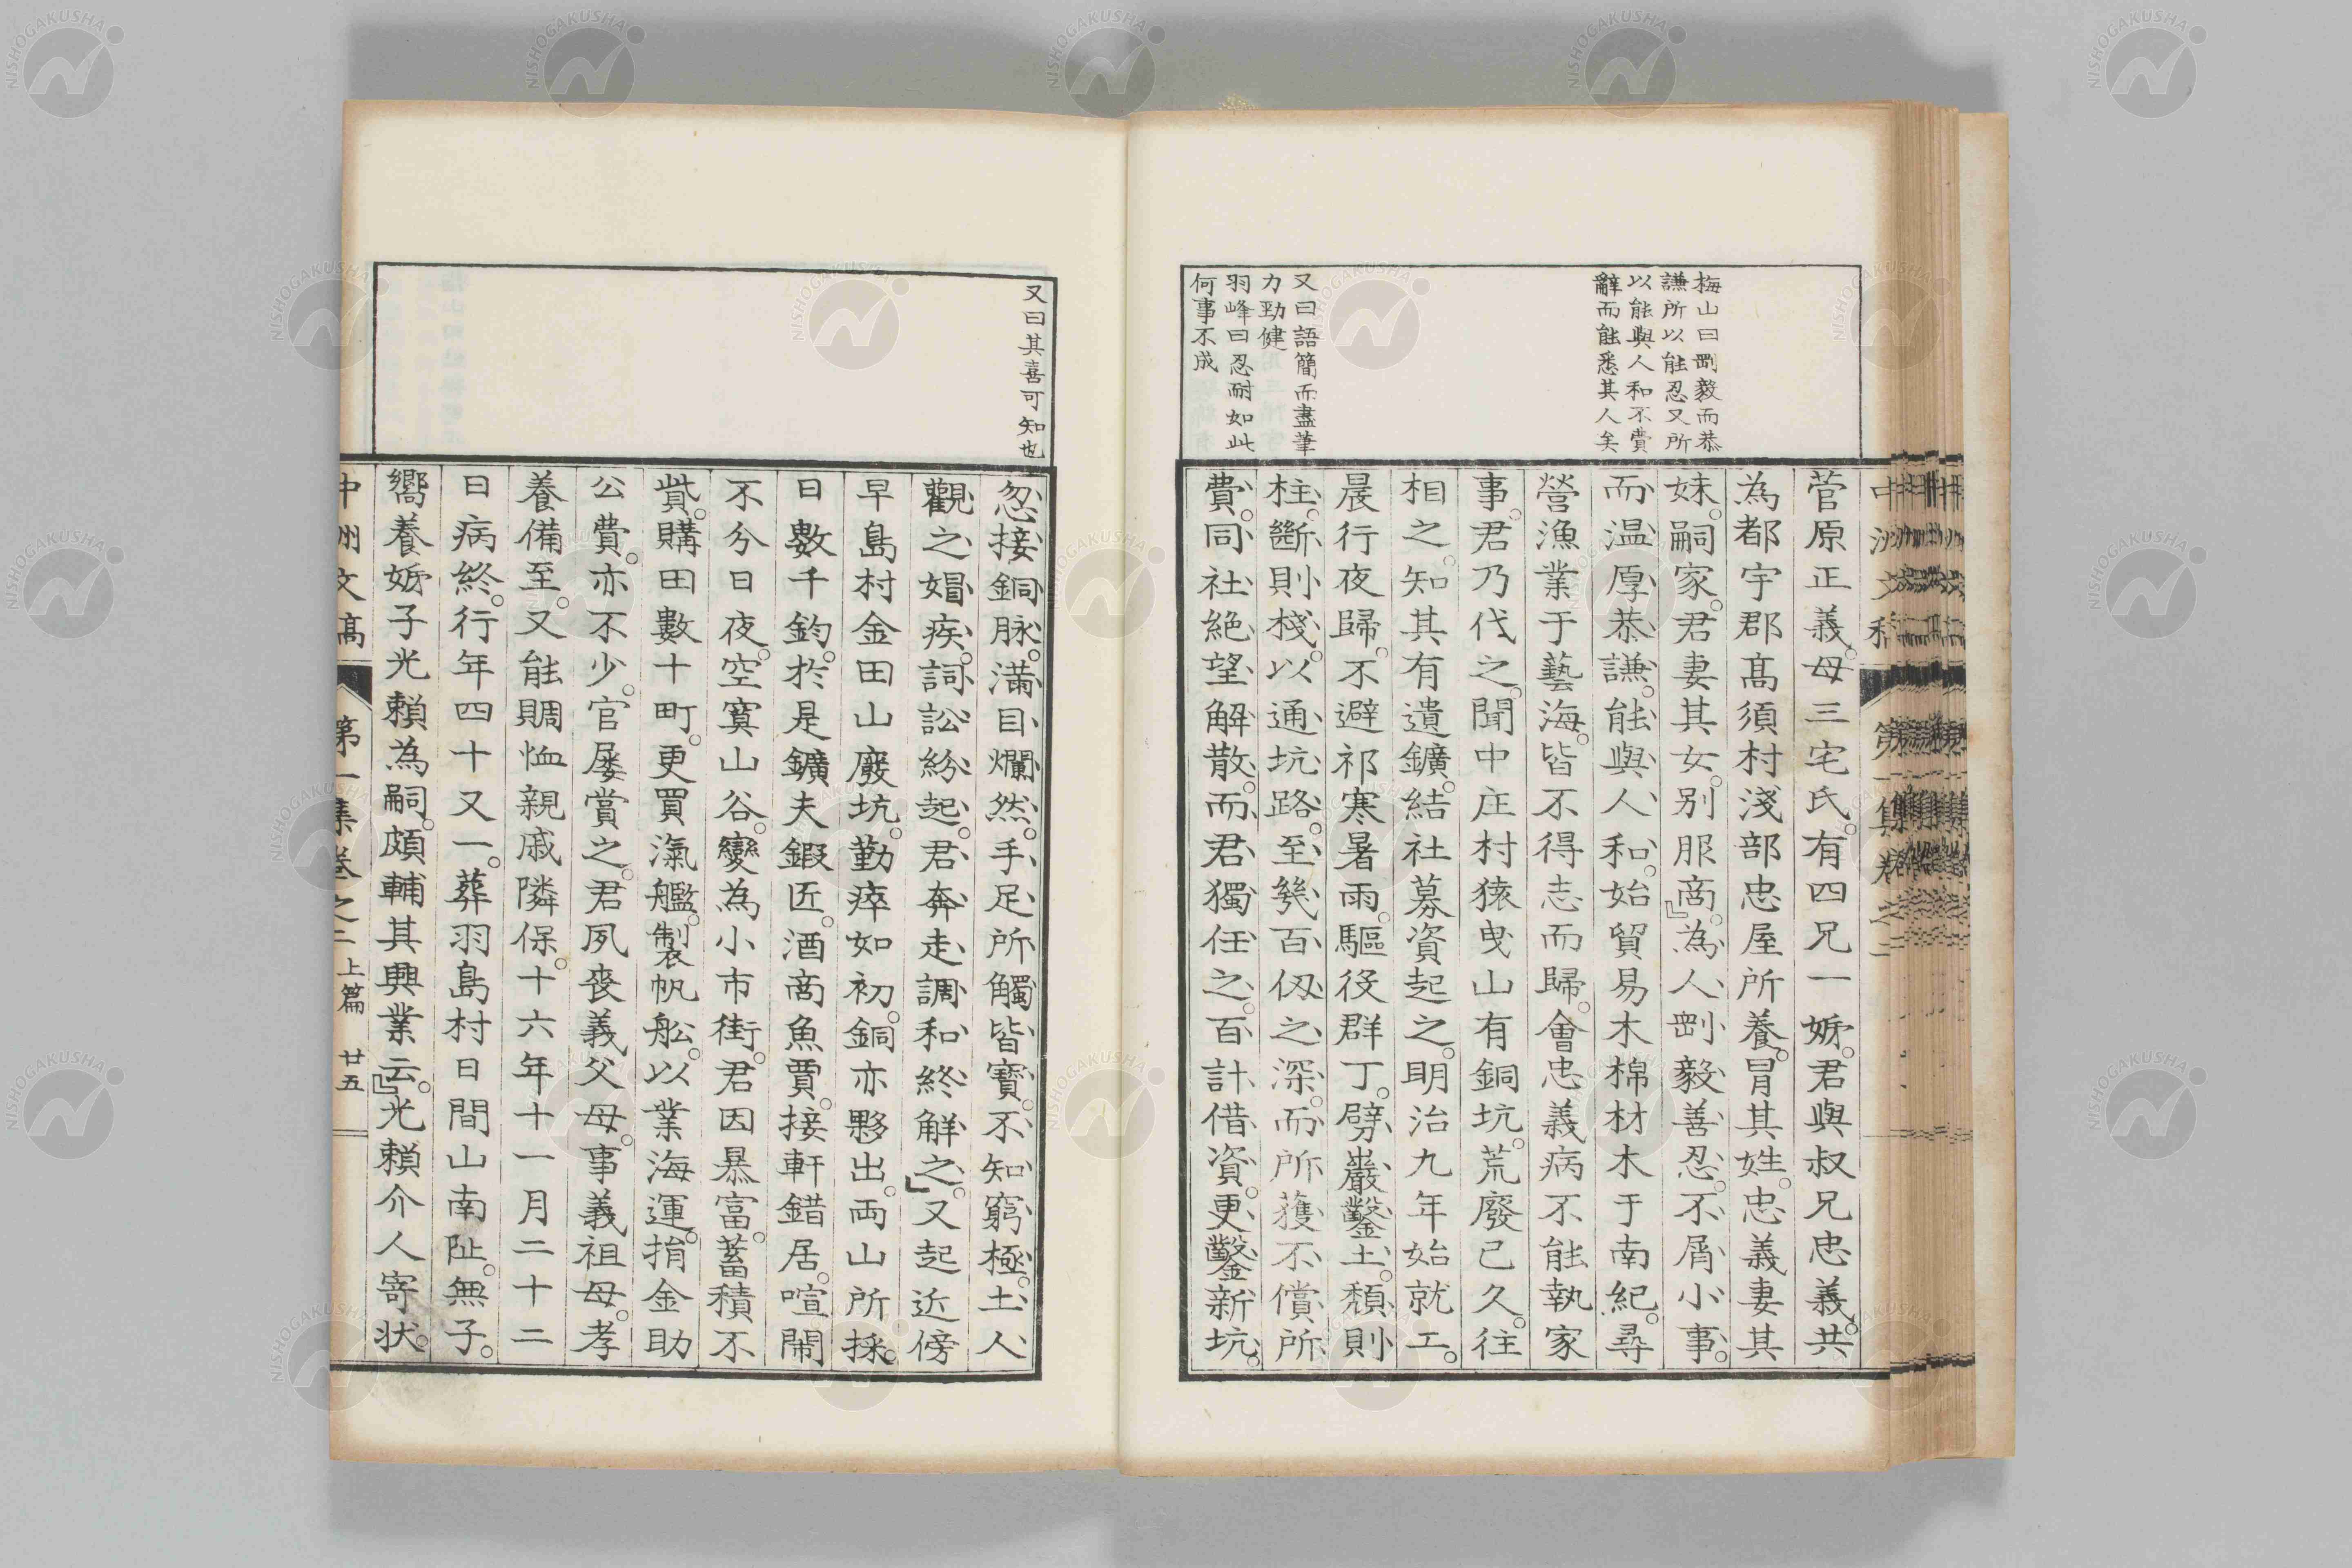 梅山曰剛毅而恭
謙所以能忍又所
以能與人和不費
辭而能悉其人矣
又曰語簡而盡筆
力勁健
羽峰曰忍耐如此
何事不成
菅原正義。母三宅氏。有四兄一妌。君與叔兄忠義。共
為都宇郡高須村淺部忠屋所養。冒其姓。忠義妻其
妹。嗣家。君妻其女。別服商。』為人剛毅善忍。不屑小事。
而溫厚恭謙。能與人和。始貿易木棉材木于南紀。尋
營漁業于藝海。皆不得志而歸。會忠義病不能執家
事。君乃代之。聞中庄村猿曳山有銅坑。荒廢已久。往
相之。知其有遺鑛。結社募資起之。明治九年始就工。
晨行夜歸。不避祁寒暑雨。驅役群丁。劈巖鑿土。頽則
柱。斷則棧。以通坑路。至幾百仭之深。而所獲不償所
費。同社絕望解散。而君獨任之。百計借資。更鑿新坑。
又曰其喜可知也
忽接銅脉。滿目爛然。手足所觸皆寶。不知窮極。土人
觀之娼疾。詞訟紛起。君奔走調和終解之。』又起近傍
早島村金田山廢坑。勤瘁如初。銅亦夥出。両山所採。
日數千鈞。於是鑛夫鍜匠。酒商魚賈。接軒錯居。喧鬧
不分日夜。空寞山谷。變為小市街。君因暴富。蓄積不
貲。購田數十町。更買滊艦。製帆舩。以業海運。捐金助
公費。亦不少。官屡賞之。君夙喪義父母。事義祖母。孝
養備至。又能賙恤親戚隣保。十六年十一月二十二
日病終。行年四十又一。葬羽島村日間山南阯。無子。
嚮養妌子光賴為嗣。頗輔其興業云。』光賴介人寄状。
中洲文稿
第一集卷之二
上篇
廿五
NISHOGAKUSHA